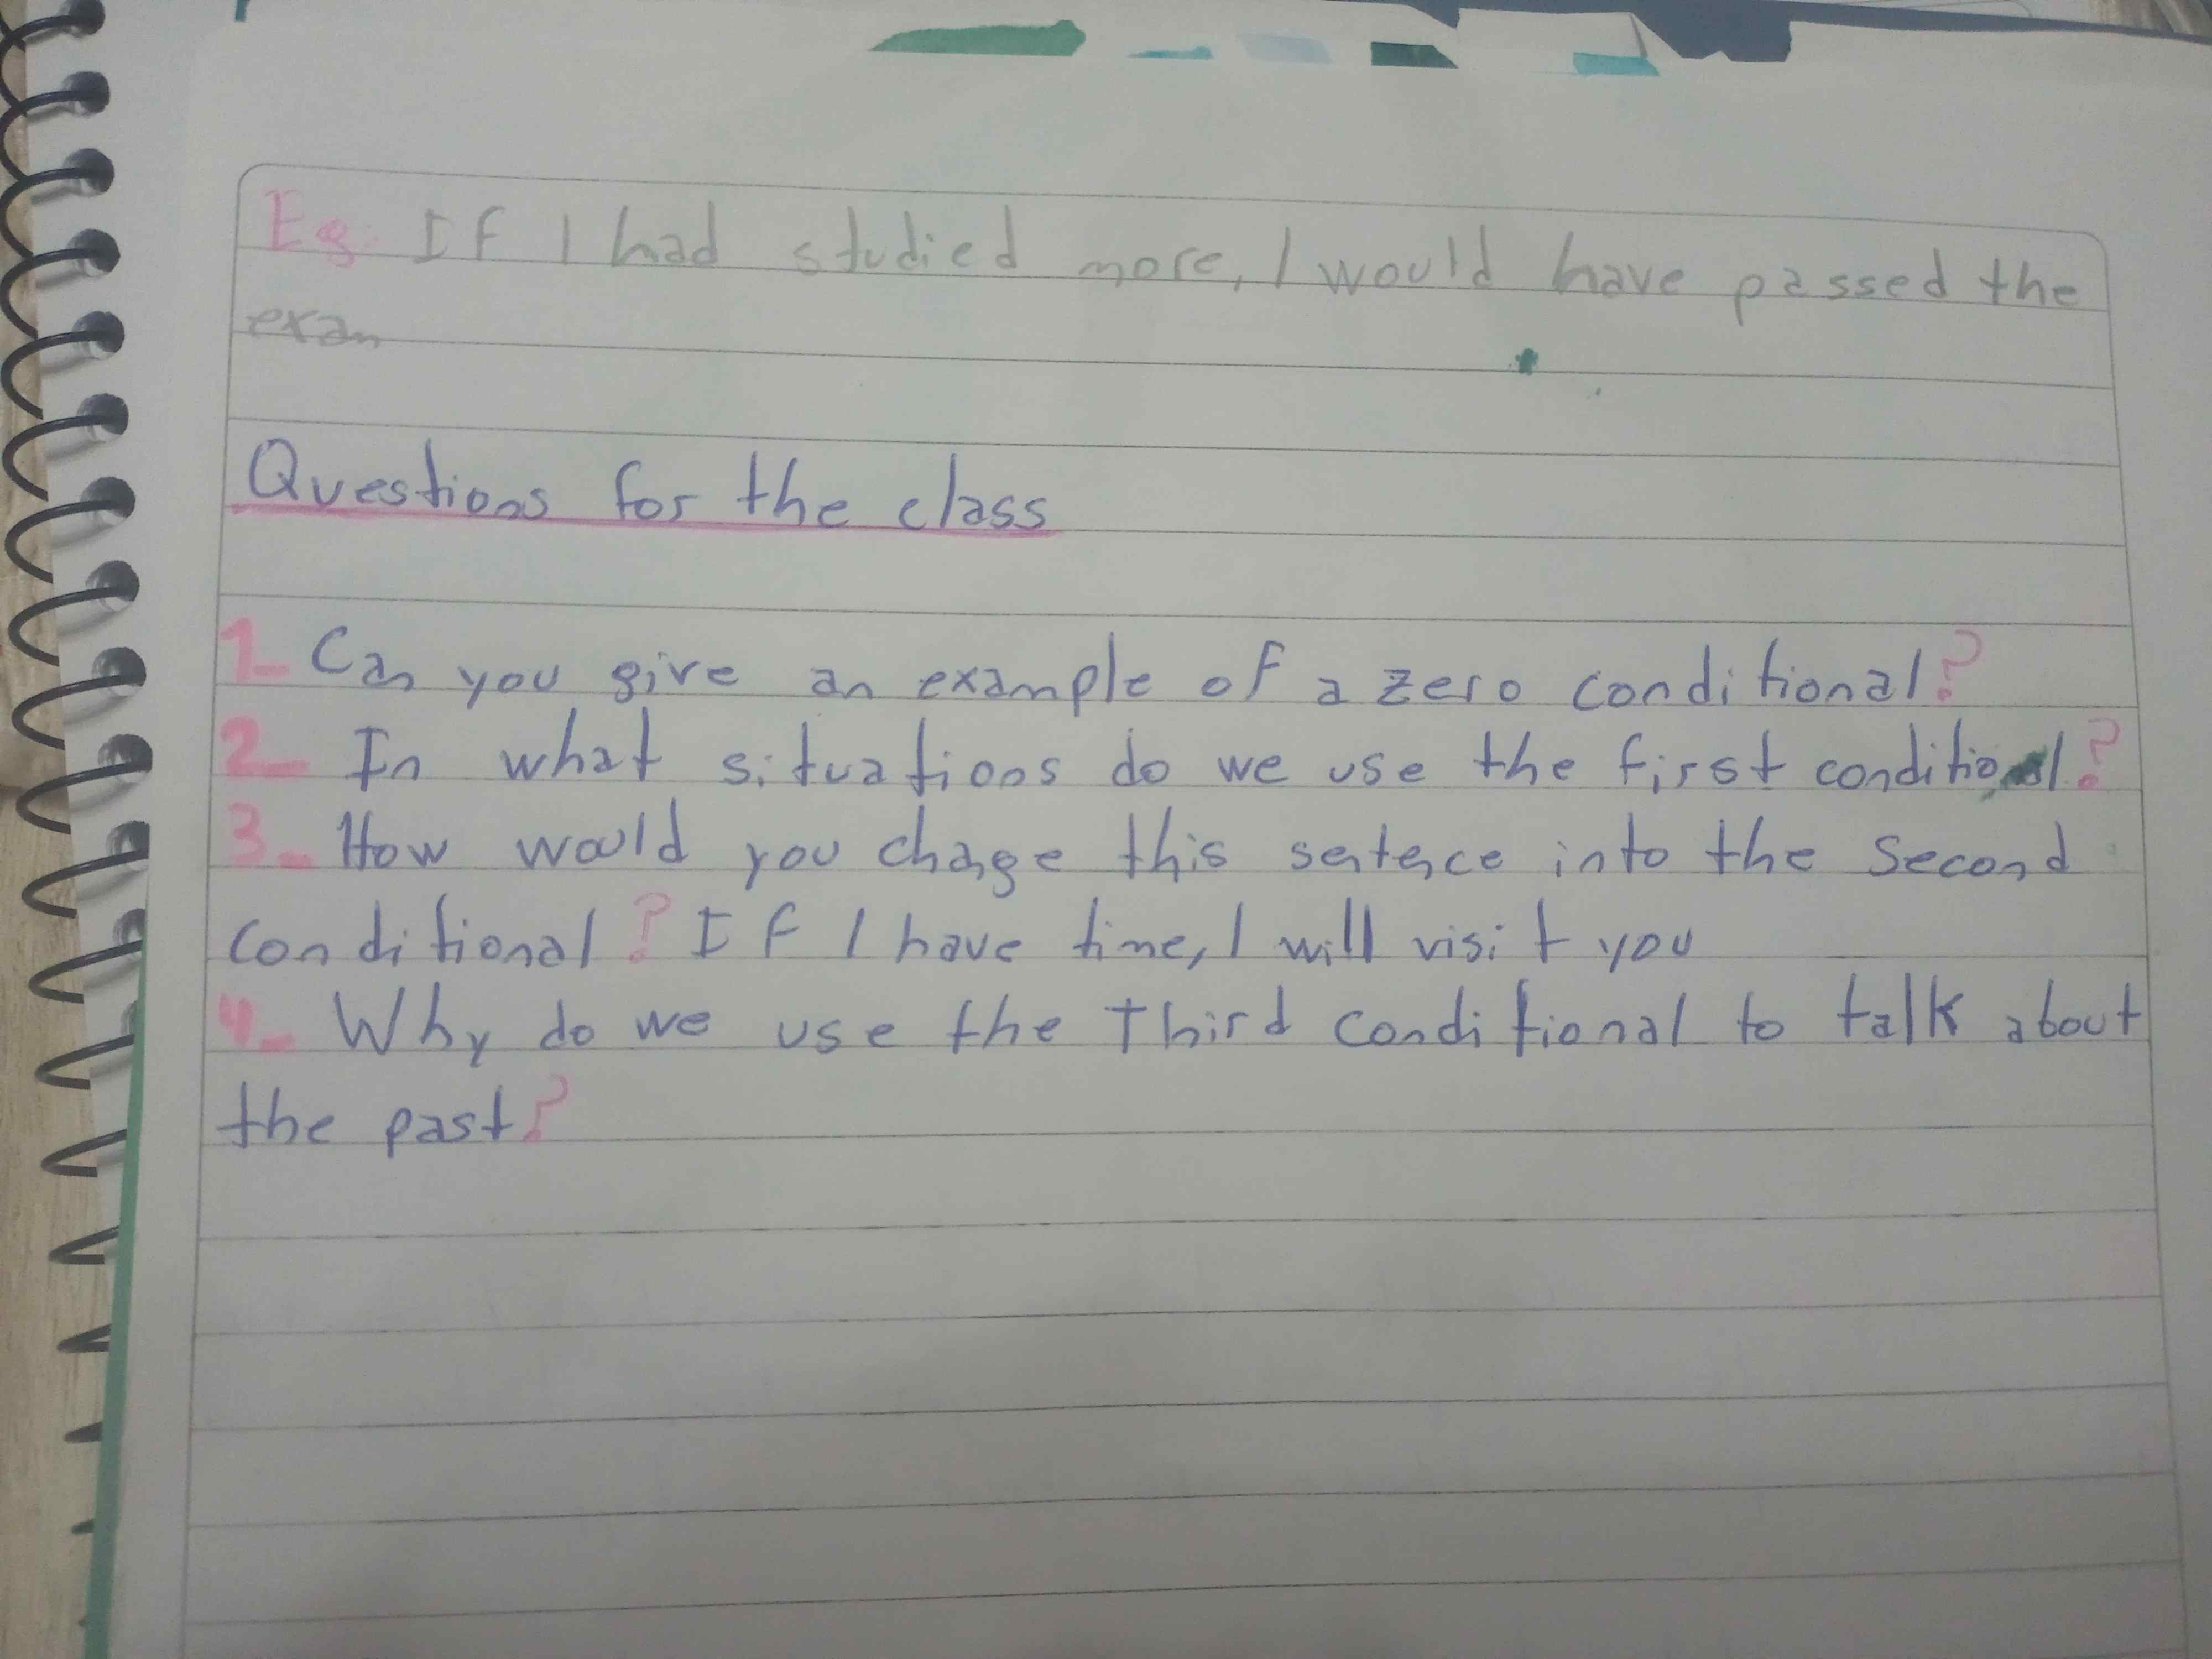 Eg. If I had studied more, I would have passed the
exam
Questions for the class
1- Can you give an example of a zero conditional?
2- In what situations do we use the first conditional?
3- How would you change this sentence into the Second
conditional? If I have time, I will visit you
4- Why do we use the Third conditional to talk about
the past?